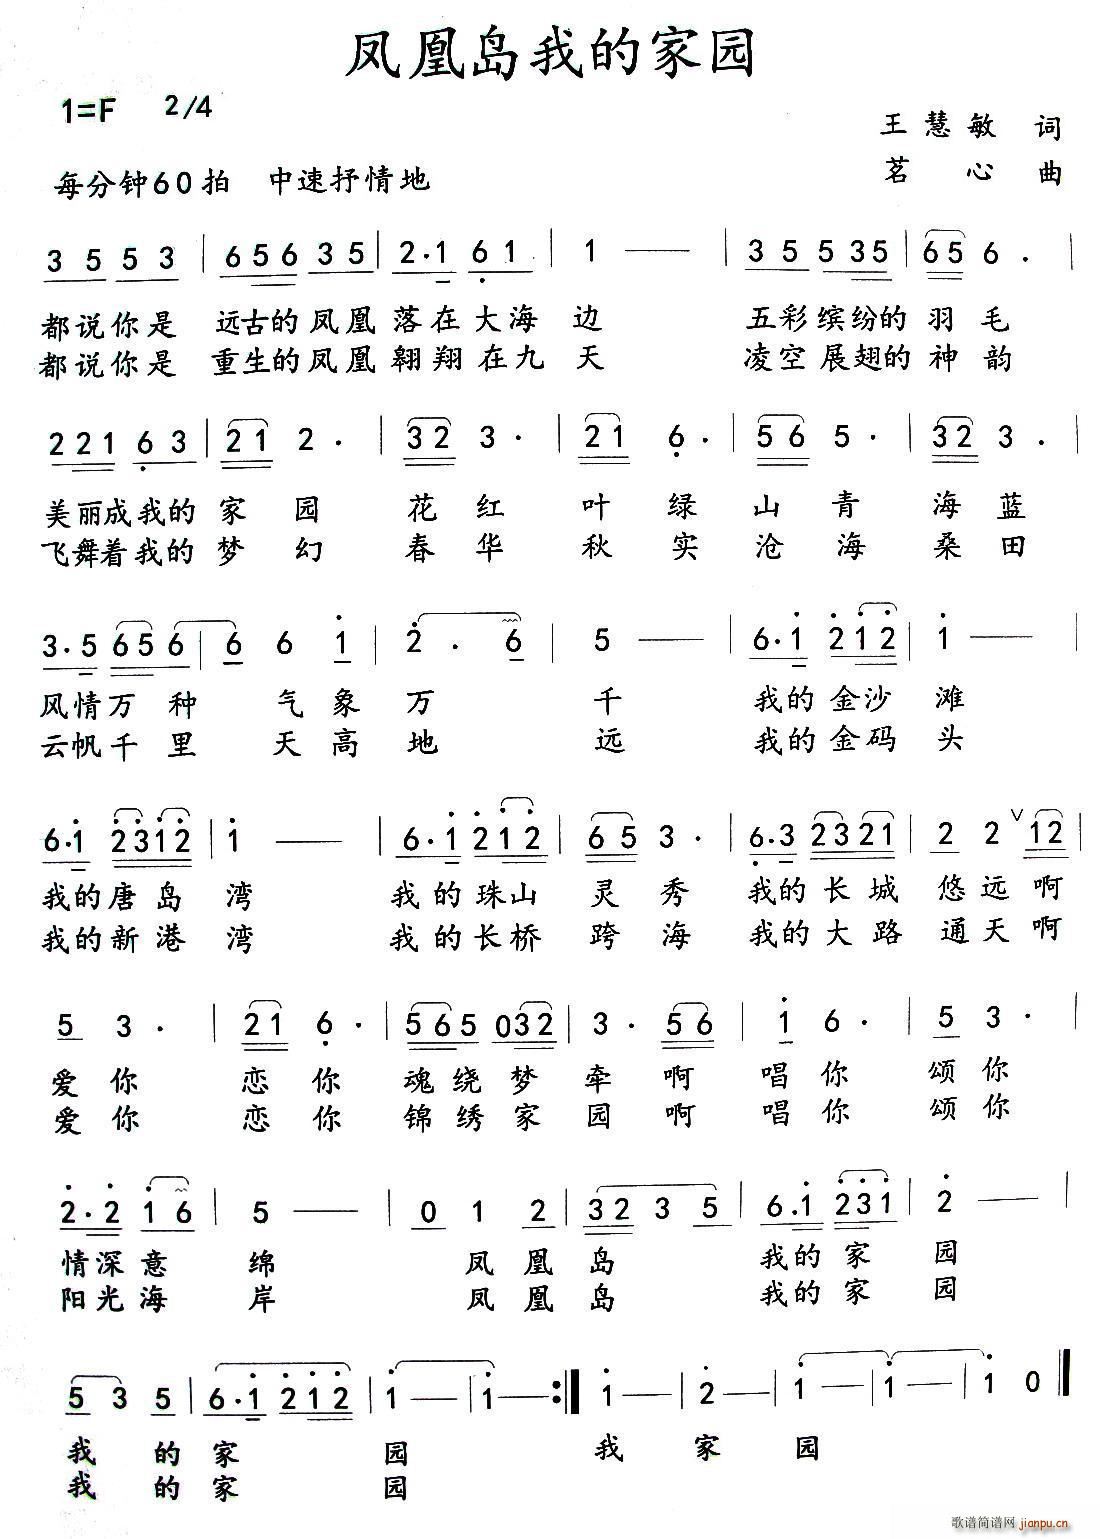 凤凰岛我的家园
1=F 2/4
王慧敏 词
每分钟60拍 中速抒情地
茗心 曲
3 5 5 3 | 6 5 6 3 5 | 2·1 6 1 | 1 — | 3 5 5 3 5 | 6 5 6 · |
都说你是 远古的凤凰 落在大海 边 五彩缤纷的 羽毛
都说你是 重生的凤凰 翱翔在九 天 凌空展翅的 神韵
2 2 1 6 3 | 2 1 2 · | 3 2 3 · | 2 1 6 · | 5 6 5 · | 3 2 3 · |
美丽成我的 家园 花红 叶绿 山青 海蓝
飞舞着我的 梦幻 春华 秋实 沧海 桑田
3·5 6 5 6 | 6 6 1 | 2 · 6 | 5 — | 6·1 2 1 2 | 1 — |
风情万种 气象万 千 我的金沙 滩
云帆千里 天高地 远 我的金码 头
6·1 2 3 1 2 | 1 — | 6·1 2 1 2 | 6 5 3 · | 6·3 2 3 2 1 | 2 2 V 1 2 |
我的唐岛 湾 我的珠山 灵秀 我的长城 悠远啊
我的新港 湾 我的长桥 跨海 我的大路 通天啊
5 3 · | 2 1 6 · | 5 6 5 0 3 2 | 3 · 5 6 | 1 6 · | 5 3 · |
爱你 恋你 魂绕梦 牵啊 唱你 颂你
爱你 恋你 锦绣家 园啊 唱你 颂你
2·2 1 6 | 5 — | 0 1 2 | 3 2 3 5 | 6·1 2 3 1 | 2 — |
情深意 绵 凤凰岛 我的家 园
阳光海 岸 凤凰岛 我的家 园
5 3 5 | 6·1 2 1 2 | 1 — | 1 — :‖ 1 — | 2 — | 1 — | 1 — | 1 0 ‖
我的家 园 我家园
我的家 园
歌谱简谱网 jianpu.cn